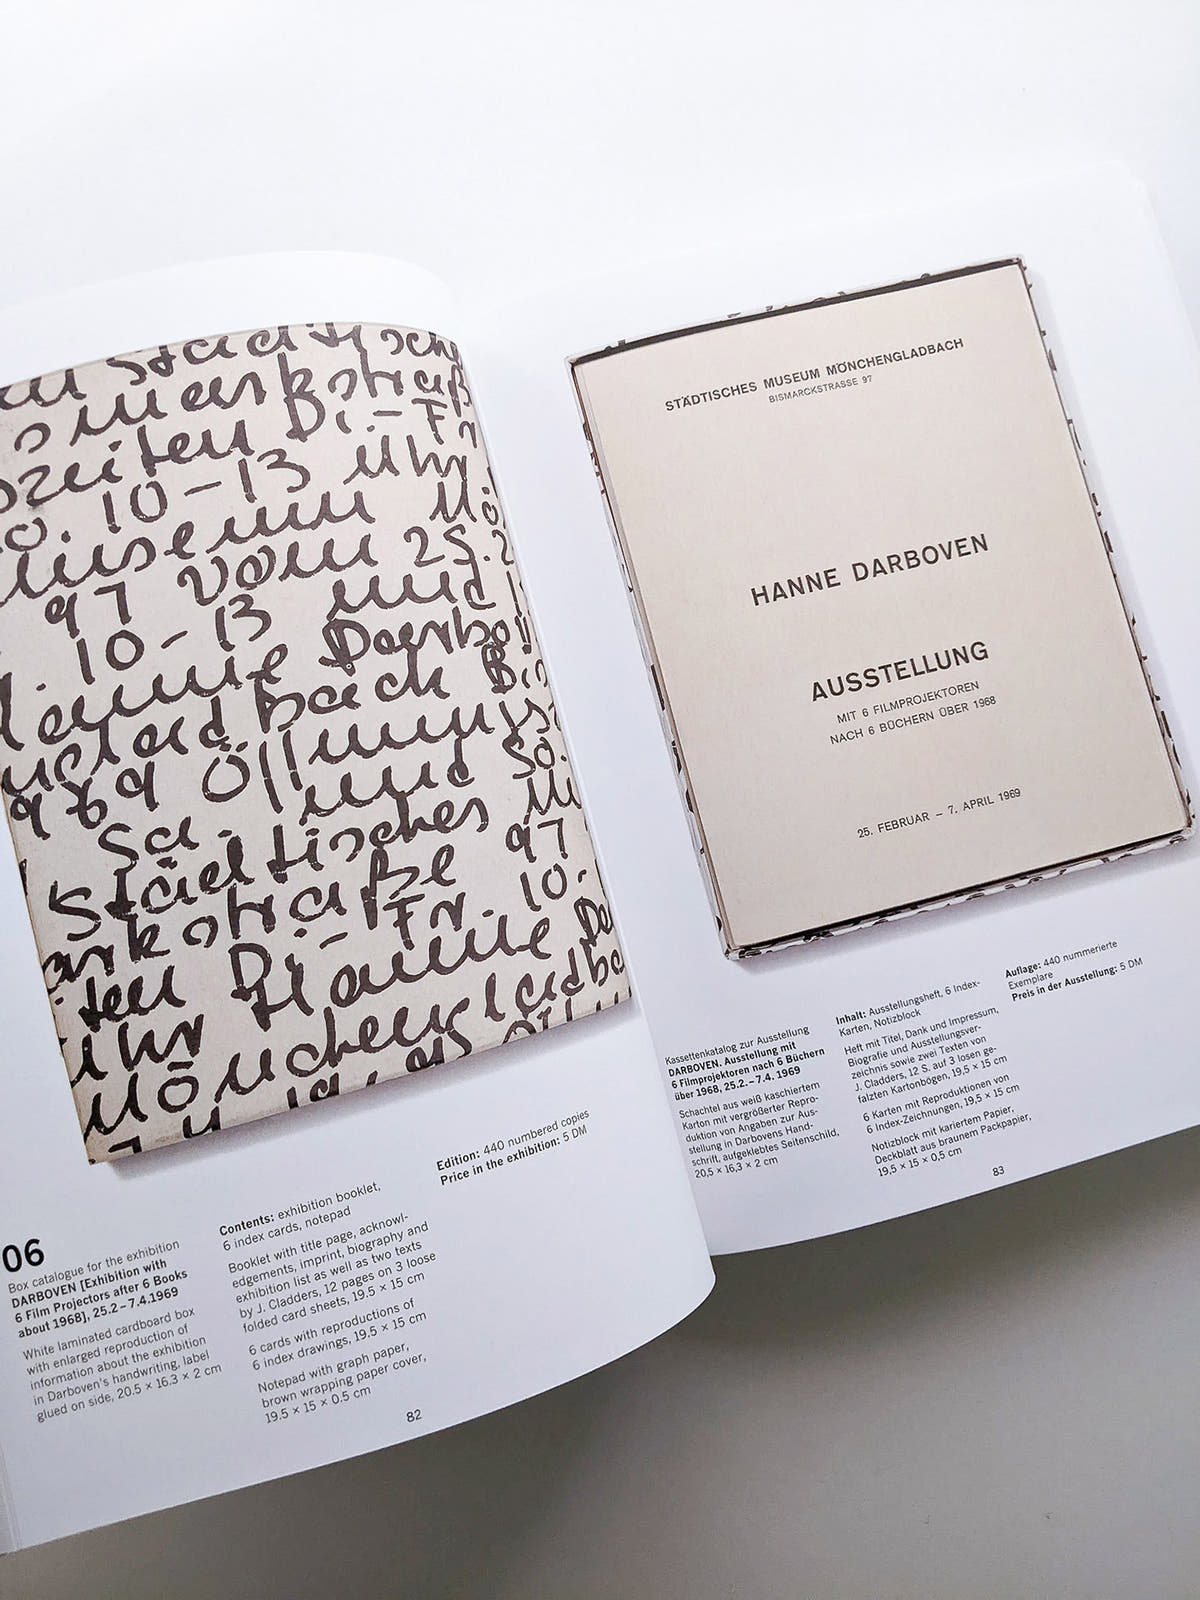 en Städtische
smarkstraß
szeiten Di.-Fr
So. 10-13 Uhr
Museum Mö
97 vom 25.2
. 10-13 und 1
Hanne Darbov
nchengladbach Bis
969 Öffnungsz
Sa. und So.
Städtisches Mu
arkstraße 97
iten Di.-Fr. 10-
Uhr Hanne Da
Mönchengladba
06
Box catalogue for the exhibition
DARBOVEN [Exhibition with
6 Film Projectors after 6 Books
about 1968], 25.2–7.4.1969
White laminated cardboard box
with enlarged reproduction of
information about the exhibition
in Darboven's handwriting, label
glued on side, 20.5 × 16.3 × 2 cm
Contents: exhibition booklet,
6 index cards, notepad
Booklet with title page, acknowl-
edgements, imprint, biography and
exhibition list as well as two texts
by J. Cladders, 12 pages on 3 loose
folded card sheets, 19.5 × 15 cm
6 cards with reproductions of
6 index drawings, 19.5 × 15 cm
Notepad with graph paper,
brown wrapping paper cover,
19.5 × 15 × 0.5 cm
Edition: 440 numbered copies
Price in the exhibition: 5 DM
82
STÄDTISCHES MUSEUM MÖNCHENGLADBACH
BISMARCKSTRASSE 97
HANNE DARBOVEN
AUSSTELLUNG
MIT 6 FILMPROJEKTOREN
NACH 6 BÜCHERN ÜBER 1968
25. FEBRUAR – 7. APRIL 1969
Kassettenkatalog zur Ausstellung
DARBOVEN. Ausstellung mit
6 Filmprojektoren nach 6 Büchern
über 1968, 25.2.–7.4. 1969
Schachtel aus weiß kaschiertem
Karton mit vergrößerter Repro-
duktion von Angaben zur Aus-
stellung in Darbovens Hand-
schrift, aufgeklebtes Seitenschild,
20,5 × 16,3 × 2 cm
Inhalt: Ausstellungsheft, 6 Index-
Karten, Notizblock
Heft mit Titel, Dank und Impressum,
Biografie und Ausstellungsver-
zeichnis sowie zwei Texten von
J. Cladders, 12 S. auf 3 losen ge-
falzten Kartonbögen, 19,5 × 15 cm
6 Karten mit Reproduktionen von
6 Index-Zeichnungen, 19,5 × 15 cm
Notizblock mit kariertem Papier,
Deckblatt aus braunem Packpapier,
19,5 × 15 × 0,5 cm
Auflage: 440 nummerierte
Exemplare
Preis in der Ausstellung: 5 DM
83